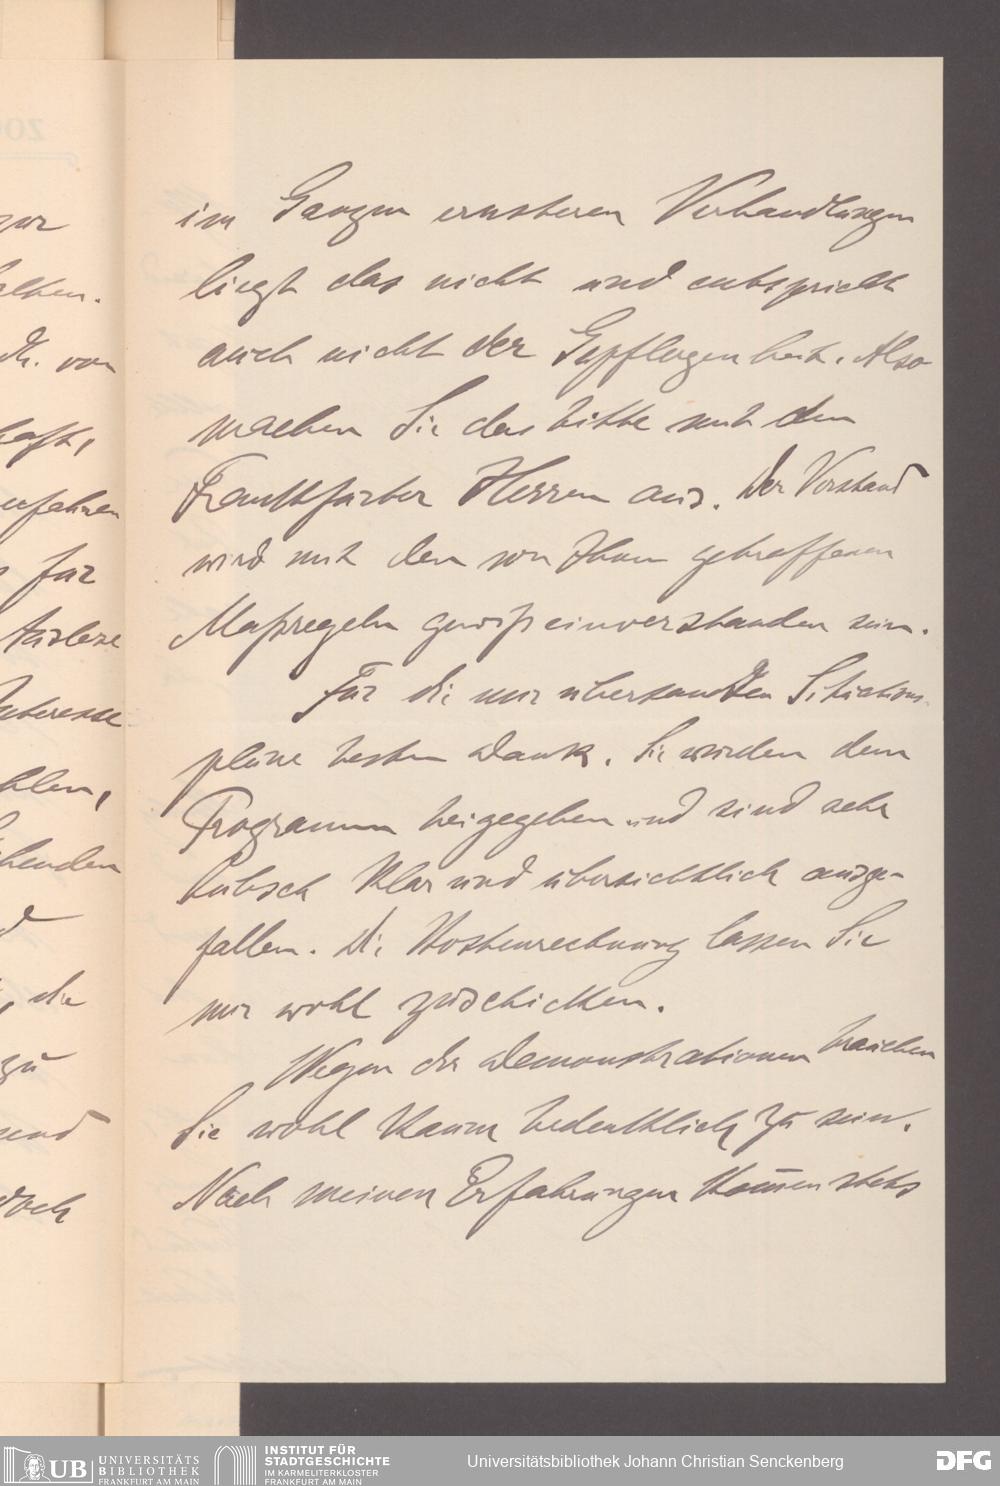 im Ganzen ernsteren Verhandlungen
liegt das nicht und entspricht
auch nicht der Gepflogenheit. Also
machen Sie das bitte mit den
Frankfurter Herren aus. Der Vorstand
wird mit den von Ihnen getroffenen
Maßregeln gewiß einverstanden sein.
Für die mir übersandten Situations-
pläne besten Dank. Sie würden dem
Programm beigegeben und sind sehr
hübsch klar und übersichtlich ausge-
fallen. Die Kostenrechnung lassen Sie
mir wohl zuschicken.
Wegen der Demonstrationen brauchen
Sie wohl kaum bedenklich zu sein.
Nach meinen Erfahrungen kom̄en stets
zur
alten.
von
haft,
erfahren
für
Auslese
Interesse
hlen,
henden
, die
zu
send
doch
UB UNIVERSITÄTS
BIBLIOTHEK
FRANKFURT AM MAIN
INSTITUT FÜR
STADTGESCHICHTE
IM KARMELITERKLOSTER
FRANKFURT AM MAIN
Universitätsbibliothek Johann Christian Senckenberg
DFG